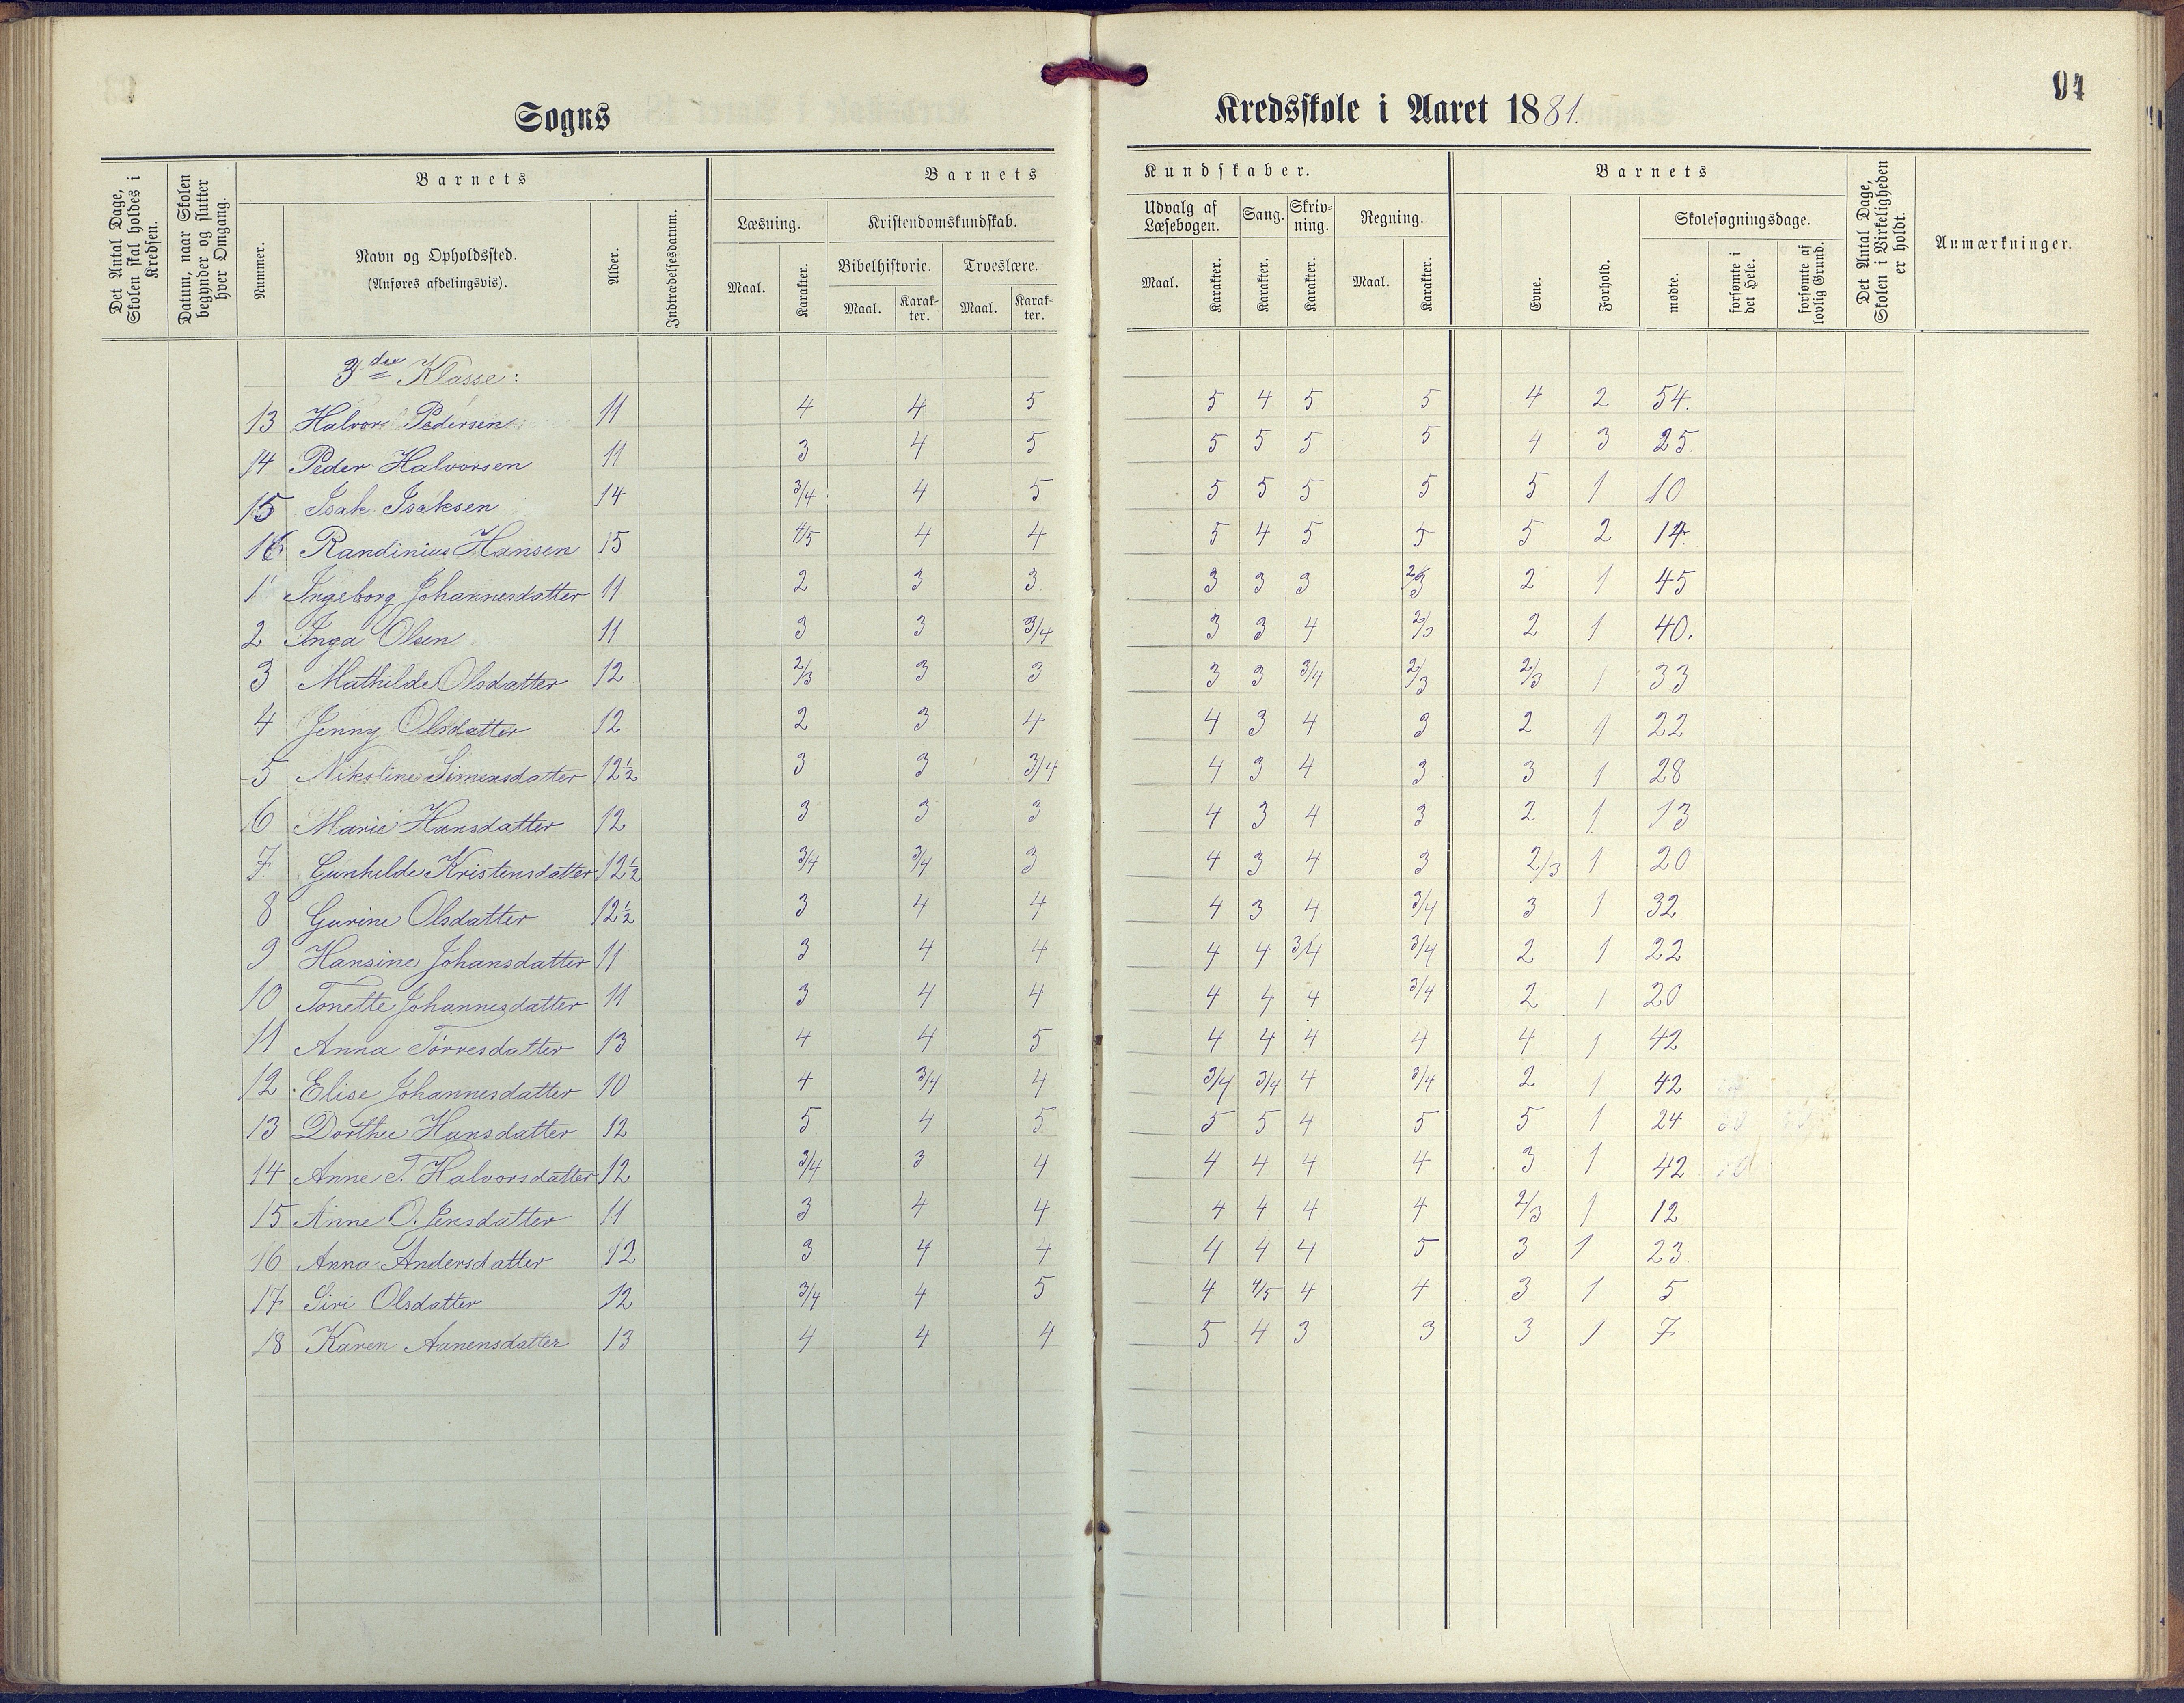 94
Sogns Kredsskole i Aaret 1881.
Det Antal Dage, Skolen skal holdes i Kredsen.
Datum, naar Skolen begynder og slutter hver Omgang.
Barnets
Nummer.
Navn og Opholdssted.
(Anføres afdelingsvis).
Alder.
Indtrædelsesdatum.
Barnets Kundskaber.
Læsning. Kristendomskundskab.
Maal. Karakter.
Bibelhistorie. Troeslære.
Maal. Karakter. Maal. Karakter.
Udvalg af Læsebogen. Sang. Skrivning. Regning.
Maal. Karakter. Karakter. Karakter. Maal. Karakter.
Barnets
Evne. Forhold.
Skolesøgningsdage.
mødte. forsømte i det Hele. forsømte af lovlig Grund.
Det Antal Dage, Skolen i Virkeligheden er holdt.
Anmærkninger.
3die Klasse:
13 Halvor Pedersen 11 4 4 5 5 4 5 5 4 2 54.
14 Peder Halvorsen 11 3 4 5 5 5 5 5 4 3 25.
15 Isak Isaksen 14 3/4 4 5 5 5 5 5 5 1 10
16 Randinius Hansen 15 4/5 4 4 5 4 5 5 5 2 14.
1 Ingeborg Johannesdatter 11 2 3 3 3 3 3 2/3 2 1 45
2 Inga Olsen 11 3 3 3/4 3 3 4 2/3 2 1 40.
3 Mathilde Olsdatter 12 2/3 3 3 3 3 3/4 2/3 2/3 1 33
4 Jenny Olsdatter 12 2 3 4 4 3 4 3 2 1 22
5 Nikoline Simensdatter 12½ 3 3 3/4 4 3 4 3 3 1 28
6 Marie Hansdatter 12 3 3 3 4 3 4 3 2 1 13
7 Gunhilde Kristensdatter 12½ 3/4 3/4 3 4 3 4 3 2/3 1 20
8 Gurine Olsdatter 12½ 3 4 4 4 3 4 3/4 3 1 32
9 Hansine Johansdatter 11 3 4 4 4 4 3/4 3/4 2 1 22
10 Tonette Johannesdatter 11 3 4 4 4 4 4 3/4 2 1 20
11 Anna Törresdatter 13 4 4 5 4 4 4 4 4 1 42
12 Elise Johannesdatter 10 4 3/4 4 3/4 3/4 4 3/4 2 1 42
13 Dorthee Hansdatter 12 5 4 5 5 5 4 5 5 1 24
14 Anne T. Halvorsdatter 12 3/4 3 4 4 4 4 4 3 1 42
15 Anne O. Jensdatter 11 3 4 4 4 4 4 4 2/3 1 12
16 Anna Andersdatter 12 3 4 4 4 4 4 5 3 1 23
17 Siri Olsdatter 12 3/4 4 5 4 4/5 4 4 3 1 5
18 Karen Aanensdatter 13 4 4 4 5 4 3 3 3 1 7